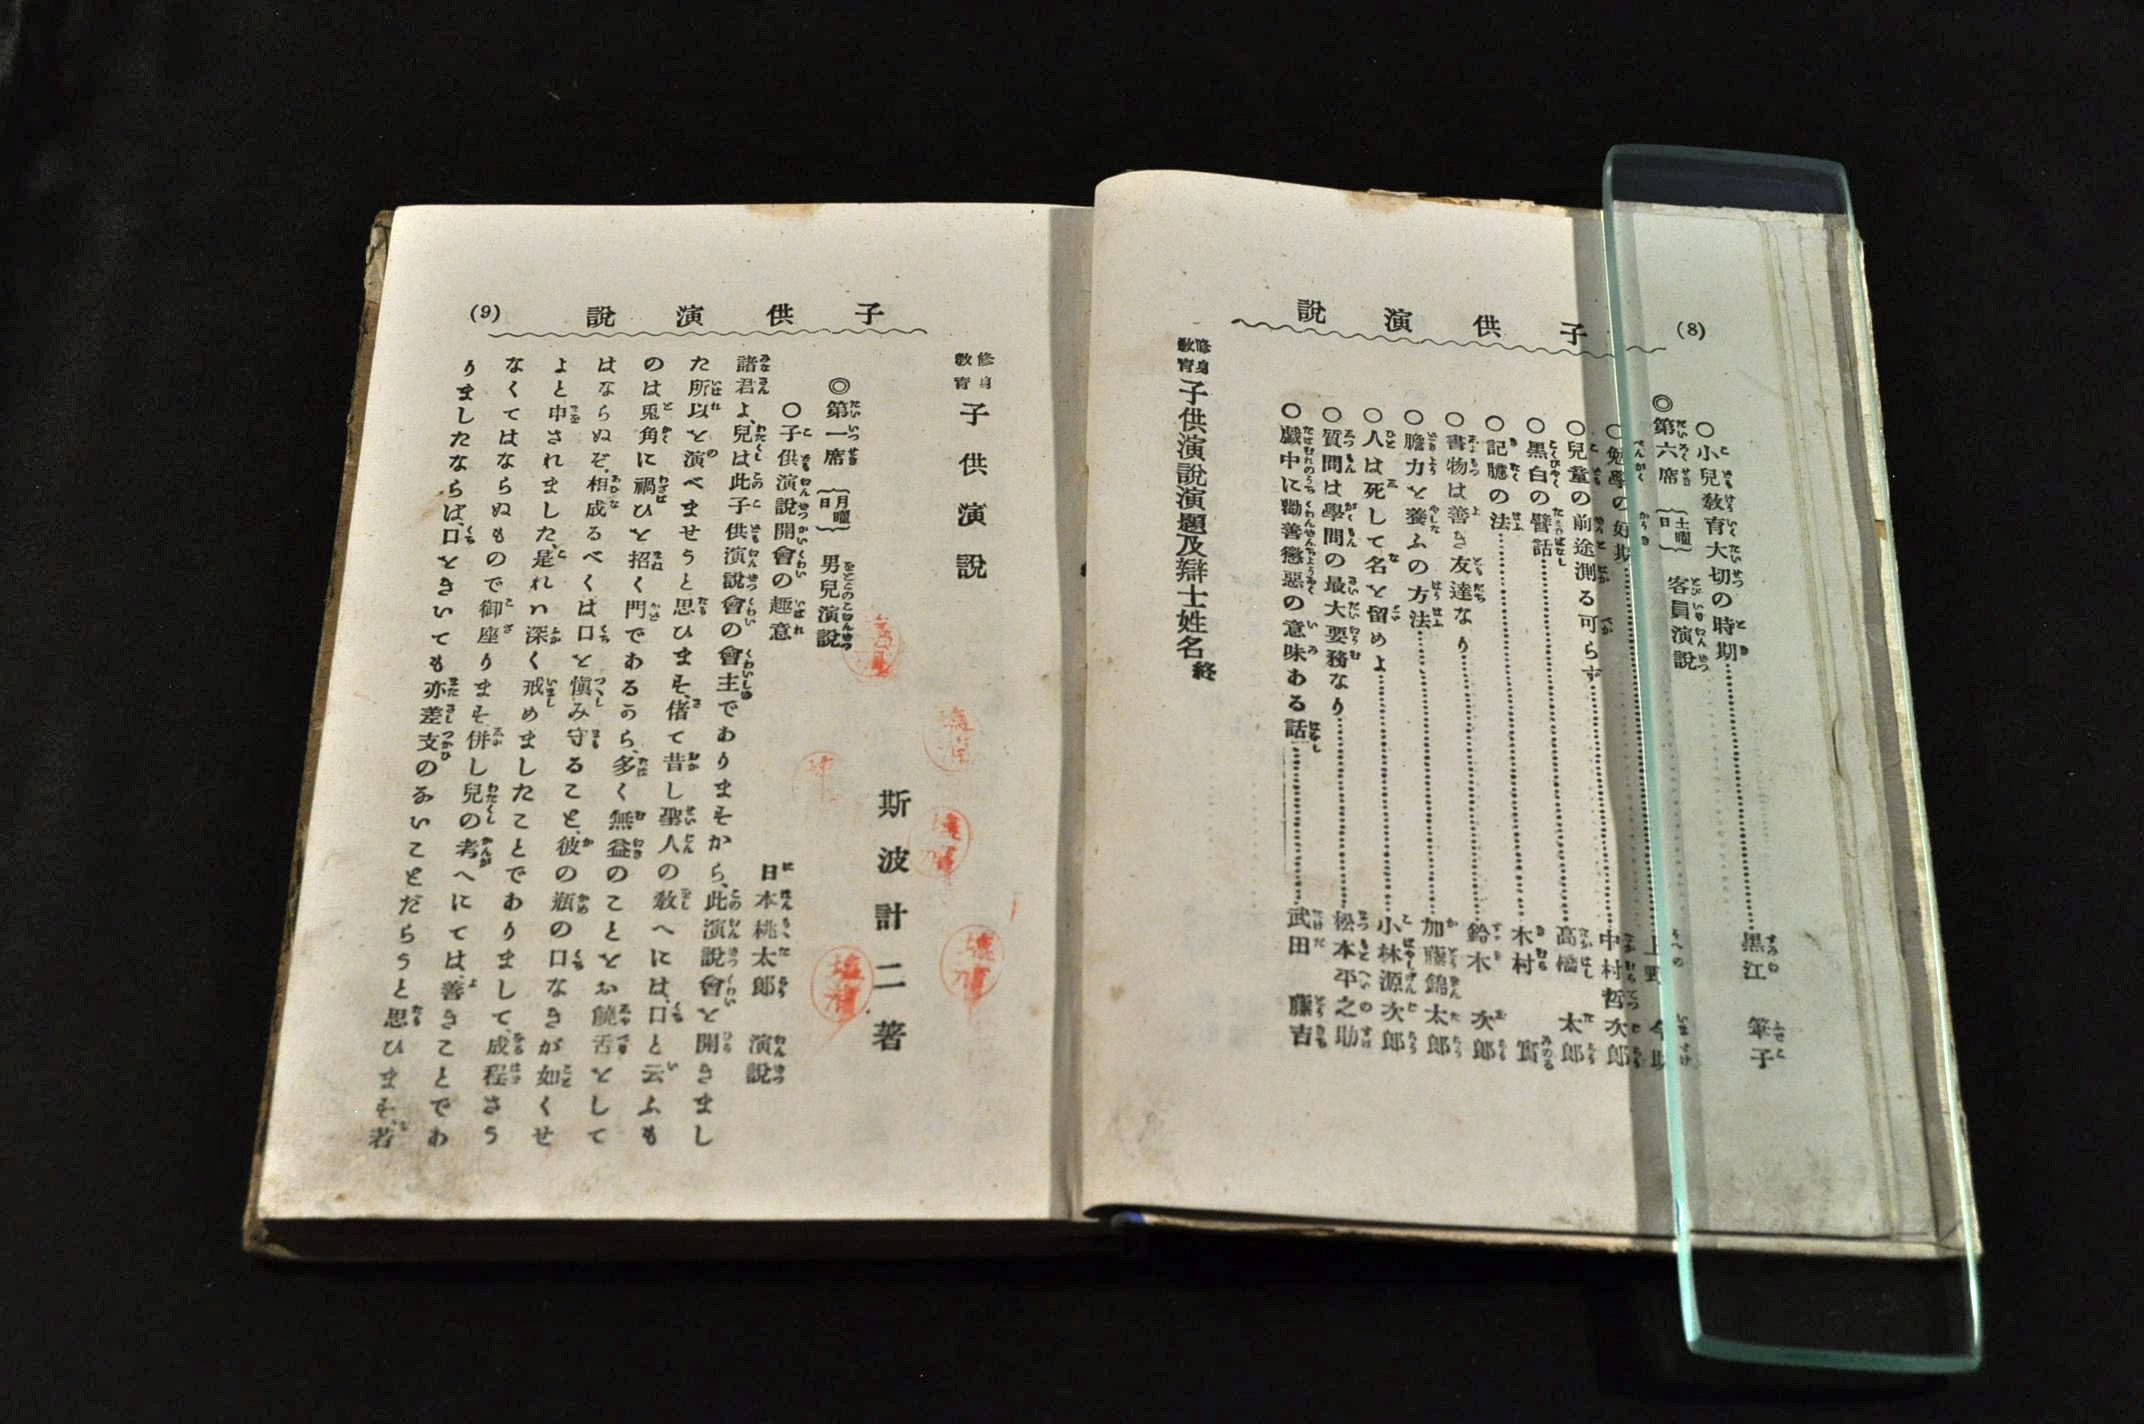 (8)
子供演説
○小兒教育大切の時期 黒江 筆子
◎第六席 (土曜日) 客員演説
○勉學の好期 上野 今助
○兒童の前途測る可らず 中村哲次郎
○黒白の譬話 高橋 太郎
○記臆の法 木村 實
○書物は善き友達なり 鈴木 次郎
○膽力を養ふの方法 加藤錦太郎
○人は死して名を留めよ 小林源次郎
○質問は學問の最大要務なり 松本平之助
○戯中に勸善懲惡の意味ある話 武田 藤吉
修身教育 子供演説演題及辯士姓名 終
子供演説
(9)
修身教育 子供演説
斯波計二著
◎第一席 (月曜日) 男兒演説
○子供演説開會の趣意 日本桃太郎 演説
諸君よ、兒は此子供演説會の會主でありますから、此演説會を開きまし
た所以を演べませうと思ひます、偖て昔し聖人の教へには、口と云ふも
のは兎角に禍ひを招く門であるから、多く無益のことをお饒舌をして
はならぬぞ、相成るべくは口を愼み守ること、彼の瓶の口なきが如くせ
よと申されました、是れハ深く戒めましたことでありまして、成程さう
なくてはならぬもので御座ります、併し兒の考へにては、善きことであ
りましたならば、口をきいても亦差支のないことだらうと思ひます、若